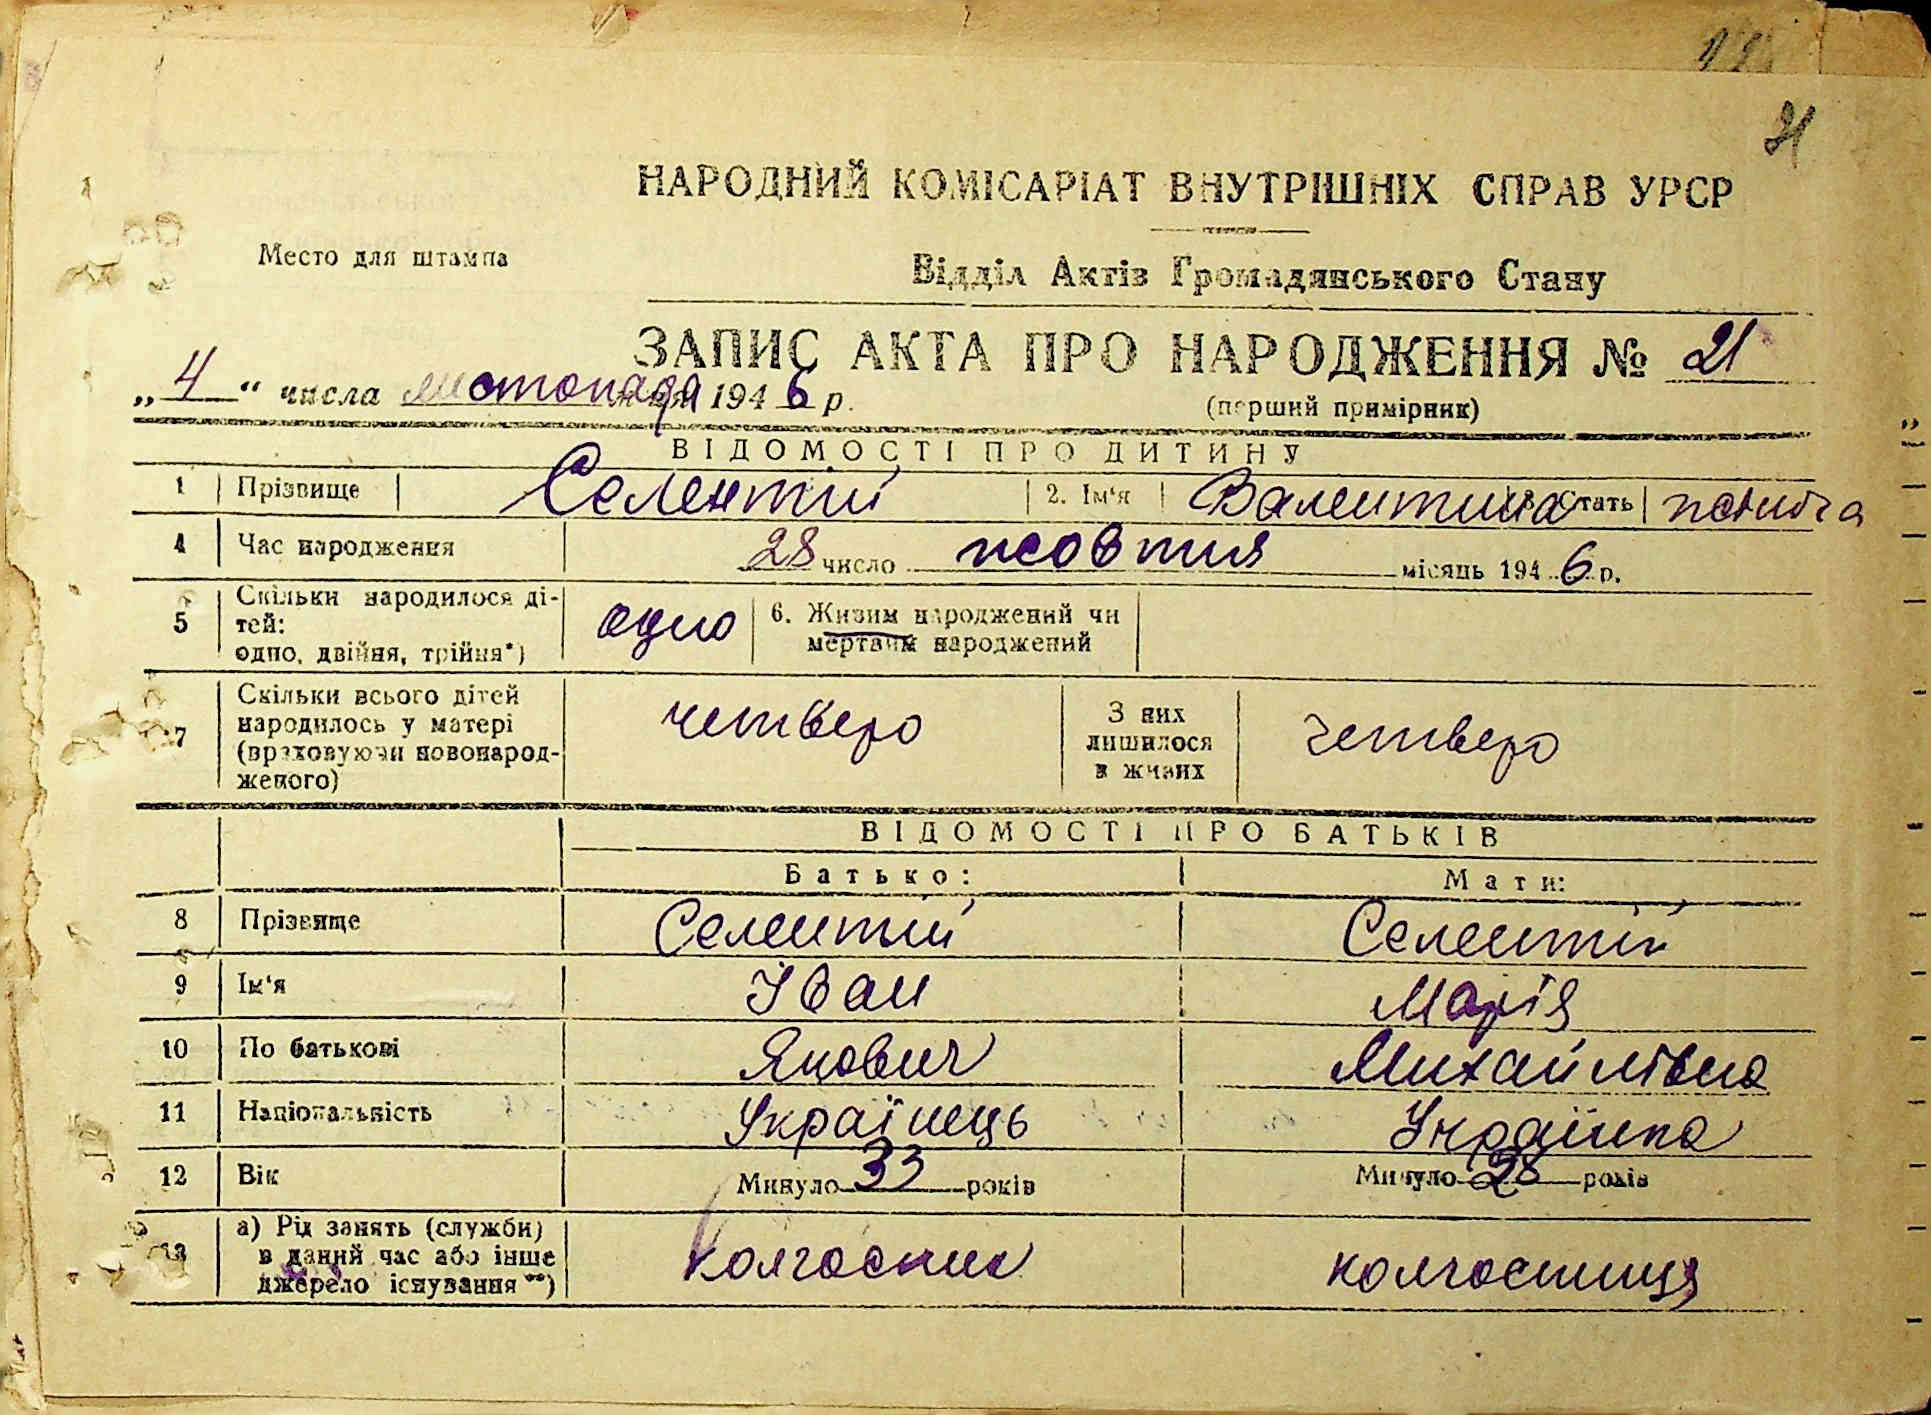 21
НАРОДНИЙ КОМІСАРІАТ ВНУТРІШНІХ СПРАВ УРСР
Место для штампа
Відділ Актів Громадянського Стану
ЗАПИС АКТА ПРО НАРОДЖЕННЯ № 21
„4“ числа листопада 1946 р.
(перший примірник)
ВІДОМОСТІ ПРО ДИТИНУ
1 Прізвище Селентій 2. Ім'я Валентина 3. Стать жіноча
4 Час народження 28 число жовтня місяць 1946 р.
5 Скільки народилося ді-
тей:
одно, двійня, трійня*) одно 6. Живим народжений чи
мертвим народжений
7 Скільки всього дітей
народилось у матері
(враховуючи новонарод-
женого) четверо З них
лишилося
в живих четверо
ВІДОМОСТІ ПРО БАТЬКІВ
Батько: Мати:
8 Прізвище Селентій Селентій
9 Ім'я Іван Марія
10 По батькові Якович Михайлівна
11 Національність Українець Українка
12 Вік Минуло 33 років Минуло 28 років
13 а) Рід занять (служби)
в даний час або інше
джерело існування**) колгосник колгосниця